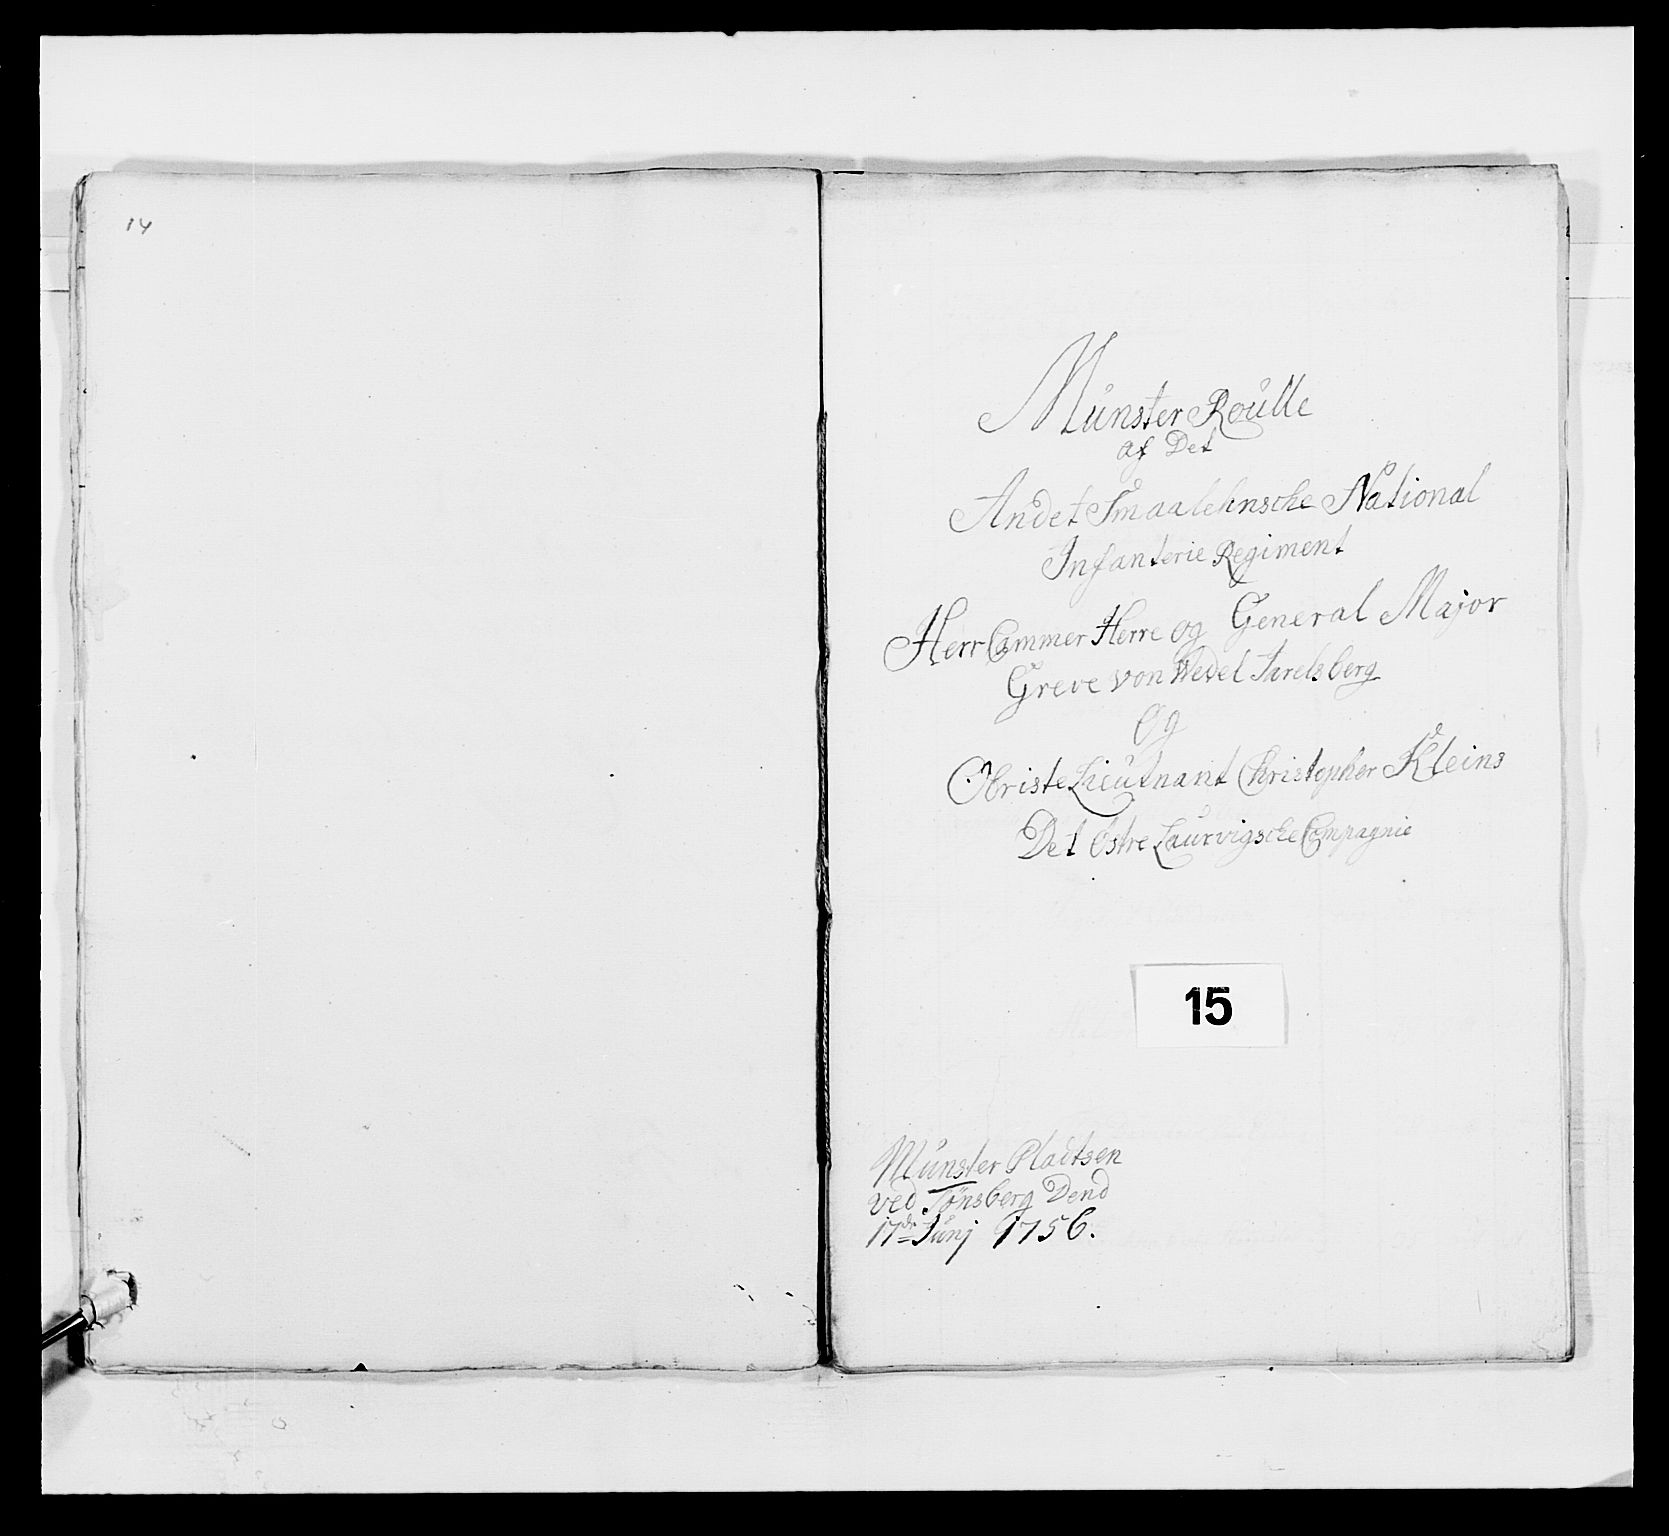 14
Münster Roülle
af Det
Andet Smaalehnsche National
Infanterie Regiment
Herr Cammer Herre og General Major
Greve von Wedel Jarelsberg
Og
Obriste Lieutnant Christopher Kleins
Det Østre Laurvigsche Compagnie
15
Münster Pladtsen
ved Tønsberg Dend
17de Junj 1756.